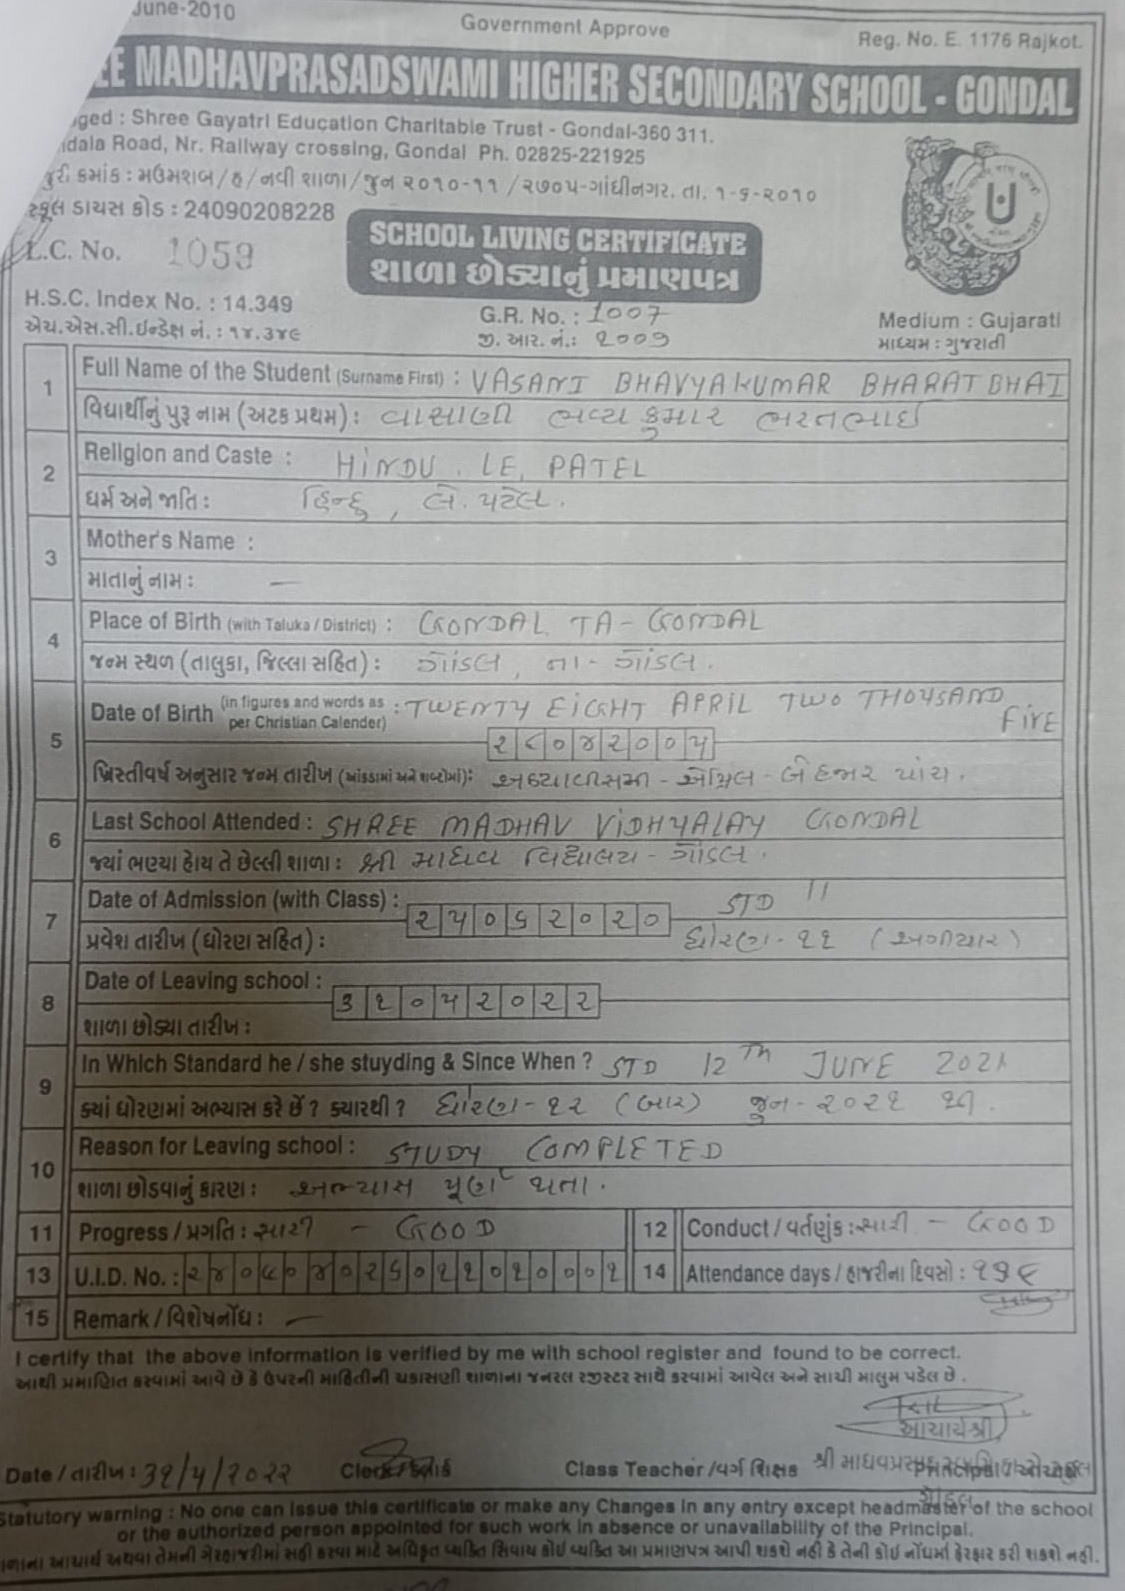 June-2010
Government Approve
Reg. No. E. 1176 Rajkot.
EE MADHAVPRASADSWAMI HIGHER SECONDARY SCHOOL - GONDAL
aged : Shree Gayatri Education Charitable Trust - Gondal-360 311.
ndala Road, Nr. Railway crossing, Gondal Ph. 02825-221925
જુરી ક્રમાંક : મઉમશબ / હ / નવી શાળા / જુન ૨૦૧૦-૧૧ / ૨૭૦૫-ગાંધીનગર. તા. ૧-૬-૨૦૧૦
સ્કૂલ ડાયસ કોડ : 24090208228
L.C. No. 1059
SCHOOL LIVING CERTIFICATE
શાળા છોડ્યાનું પ્રમાણપત્ર
H.S.C. Index No. : 14.349
G.R. No. : 1007
Medium : Gujarati
એચ.એસ.સી.ઈન્ડેક્ષ નં. : ૧૪.૩૪૯
જી. આર. નં. : ૧૦૦૭
માધ્યમ : ગુજરાતી
1 Full Name of the Student (Surname First) : VASANI BHAVYAKUMAR BHARATBHAI
વિદ્યાર્થીનું પુરૂ નામ (અટક પ્રથમ) : વાસાણી ભવ્યકુમાર ભરતભાઈ
2 Religion and Caste : HINDU . LE. PATEL
ધર્મ અને જાતિ : હિન્દુ , લે. પટેલ.
3 Mother's Name :
માતાનું નામ : —
4 Place of Birth (with Taluka / District) : GONDAL TA - GONDAL
જન્મ સ્થળ (તાલુકા, જિલ્લા સહિત) : ગોંડલ , તા - ગોંડલ .
5 Date of Birth (in figures and words as per Christian Calender) : TWENTY EIGHT APRIL TWO THOUSAND FIVE
૨૮૦૪૨૦૦૫
ખ્રિસ્તીવર્ષ અનુસાર જન્મ તારીખ (આંકડામાં અને શબ્દોમાં) : અઠ્યાવીસમી - એપ્રિલ - બે હજાર પાંચ .
6 Last School Attended : SHREE MADHAV VIDHYALAY GONDAL
જ્યાં ભણ્યા હોય તે છેલ્લી શાળા : શ્રી માધવ વિદ્યાલય - ગોંડલ .
7 Date of Admission (with Class) : ૨૫૦૬૨૦૨૦ STD 11
પ્રવેશ તારીખ (ધોરણ સહિત) : ધોરણ - ૧૧ (અગીયાર)
8 Date of Leaving school : ૩૧૦૫૨૦૨૨
શાળા છોડ્યા તારીખ :
9 In Which Standard he / she stuyding & Since When ? STD 12 TH JUNE 2021
ક્યાં ધોરણમાં અભ્યાસ કરે છે ? ક્યારથી ? ધોરણ - ૧૨ (બાર) જુન - ૨૦૨૧ થી .
10 Reason for Leaving school : STUDY COMPLETED
શાળા છોડવાનું કારણ : અભ્યાસ પૂર્ણ થતા .
11 Progress / પ્રગતિ : સારી - GOOD
12 Conduct / વર્તણુંક : સારી - GOOD
13 U.I.D. No. : ૨૪૦૯૦૪૦૨૬૦૧૧૦૧૦૦૦૧
14 Attendance days / હાજરીના દિવસો : ૧૭૯
15 Remark / વિશેષનોંધ : —
I certify that the above information is verified by me with school register and found to be correct.
આથી પ્રમાણિત કરવામાં આવે છે કે ઉપરની માહિતીની ચકાસણી શાળાના જનરલ રજીસ્ટર સાથે કરવામાં આવેલ અને સાચી માલુમ પડેલ છે .
આચાર્યશ્રી
Date / તારીખ : ૩૧/૫/૨૦૨૨
Clerk / ક્લાર્ક
Class Teacher / વર્ગ શિક્ષક
Principal / આચાર્ય
ગોંડલ
Statutory warning : No one can issue this certificate or make any Changes in any entry except headmaster of the school
or the authorized person appointed for such work in absence or unavailability of the Principal.
ળાના આચાર્ય અથવા તેમની ગેરહાજરીમાં સહી કરવા માટે અધિકૃત વ્યક્તિ સિવાય કોઈ વ્યક્તિ આ પ્રમાણપત્ર આપી શકશે નહી કે તેની કોઈ નોંધમાં ફેરફાર કરી શકશે નહી.